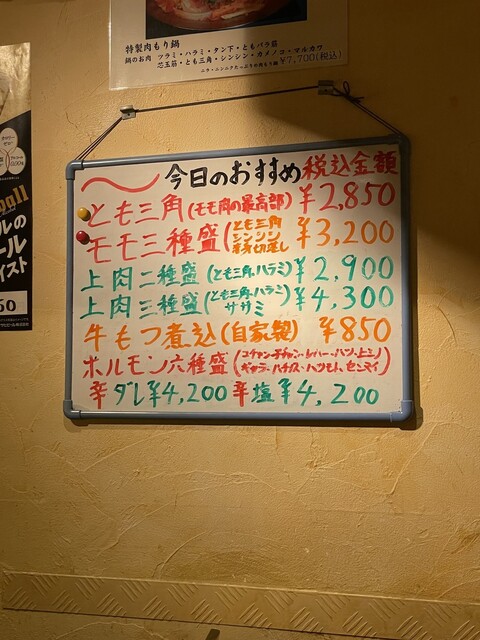 特製肉もり鍋
鍋のお肉 ツラミ・ハラミ・タン下・ともバラ筋
芯玉筋・とも三角・シンシン・カメノコ・マルカワ ¥7,700(税込)
今日のおすすめ 税込金額
とも三角(モモ肉の最高部) ¥2,850
モモ三種盛(とも三角 シンシン ¥3,200
上肉二種盛(とも三角、ハラミ) ¥2,900
上肉三種盛(とも三角、ハラミ ササミ) ¥4,300
牛もつ煮込(自家製) ¥850
ホルモン六種盛(コチャン・チチャン・レバー・ハツ・上ミノ
ギャラ・ハチノス・ハツモト、センマイ)
辛ダレ¥4,200 辛塩¥4,200
ルの
ール
イスト
50